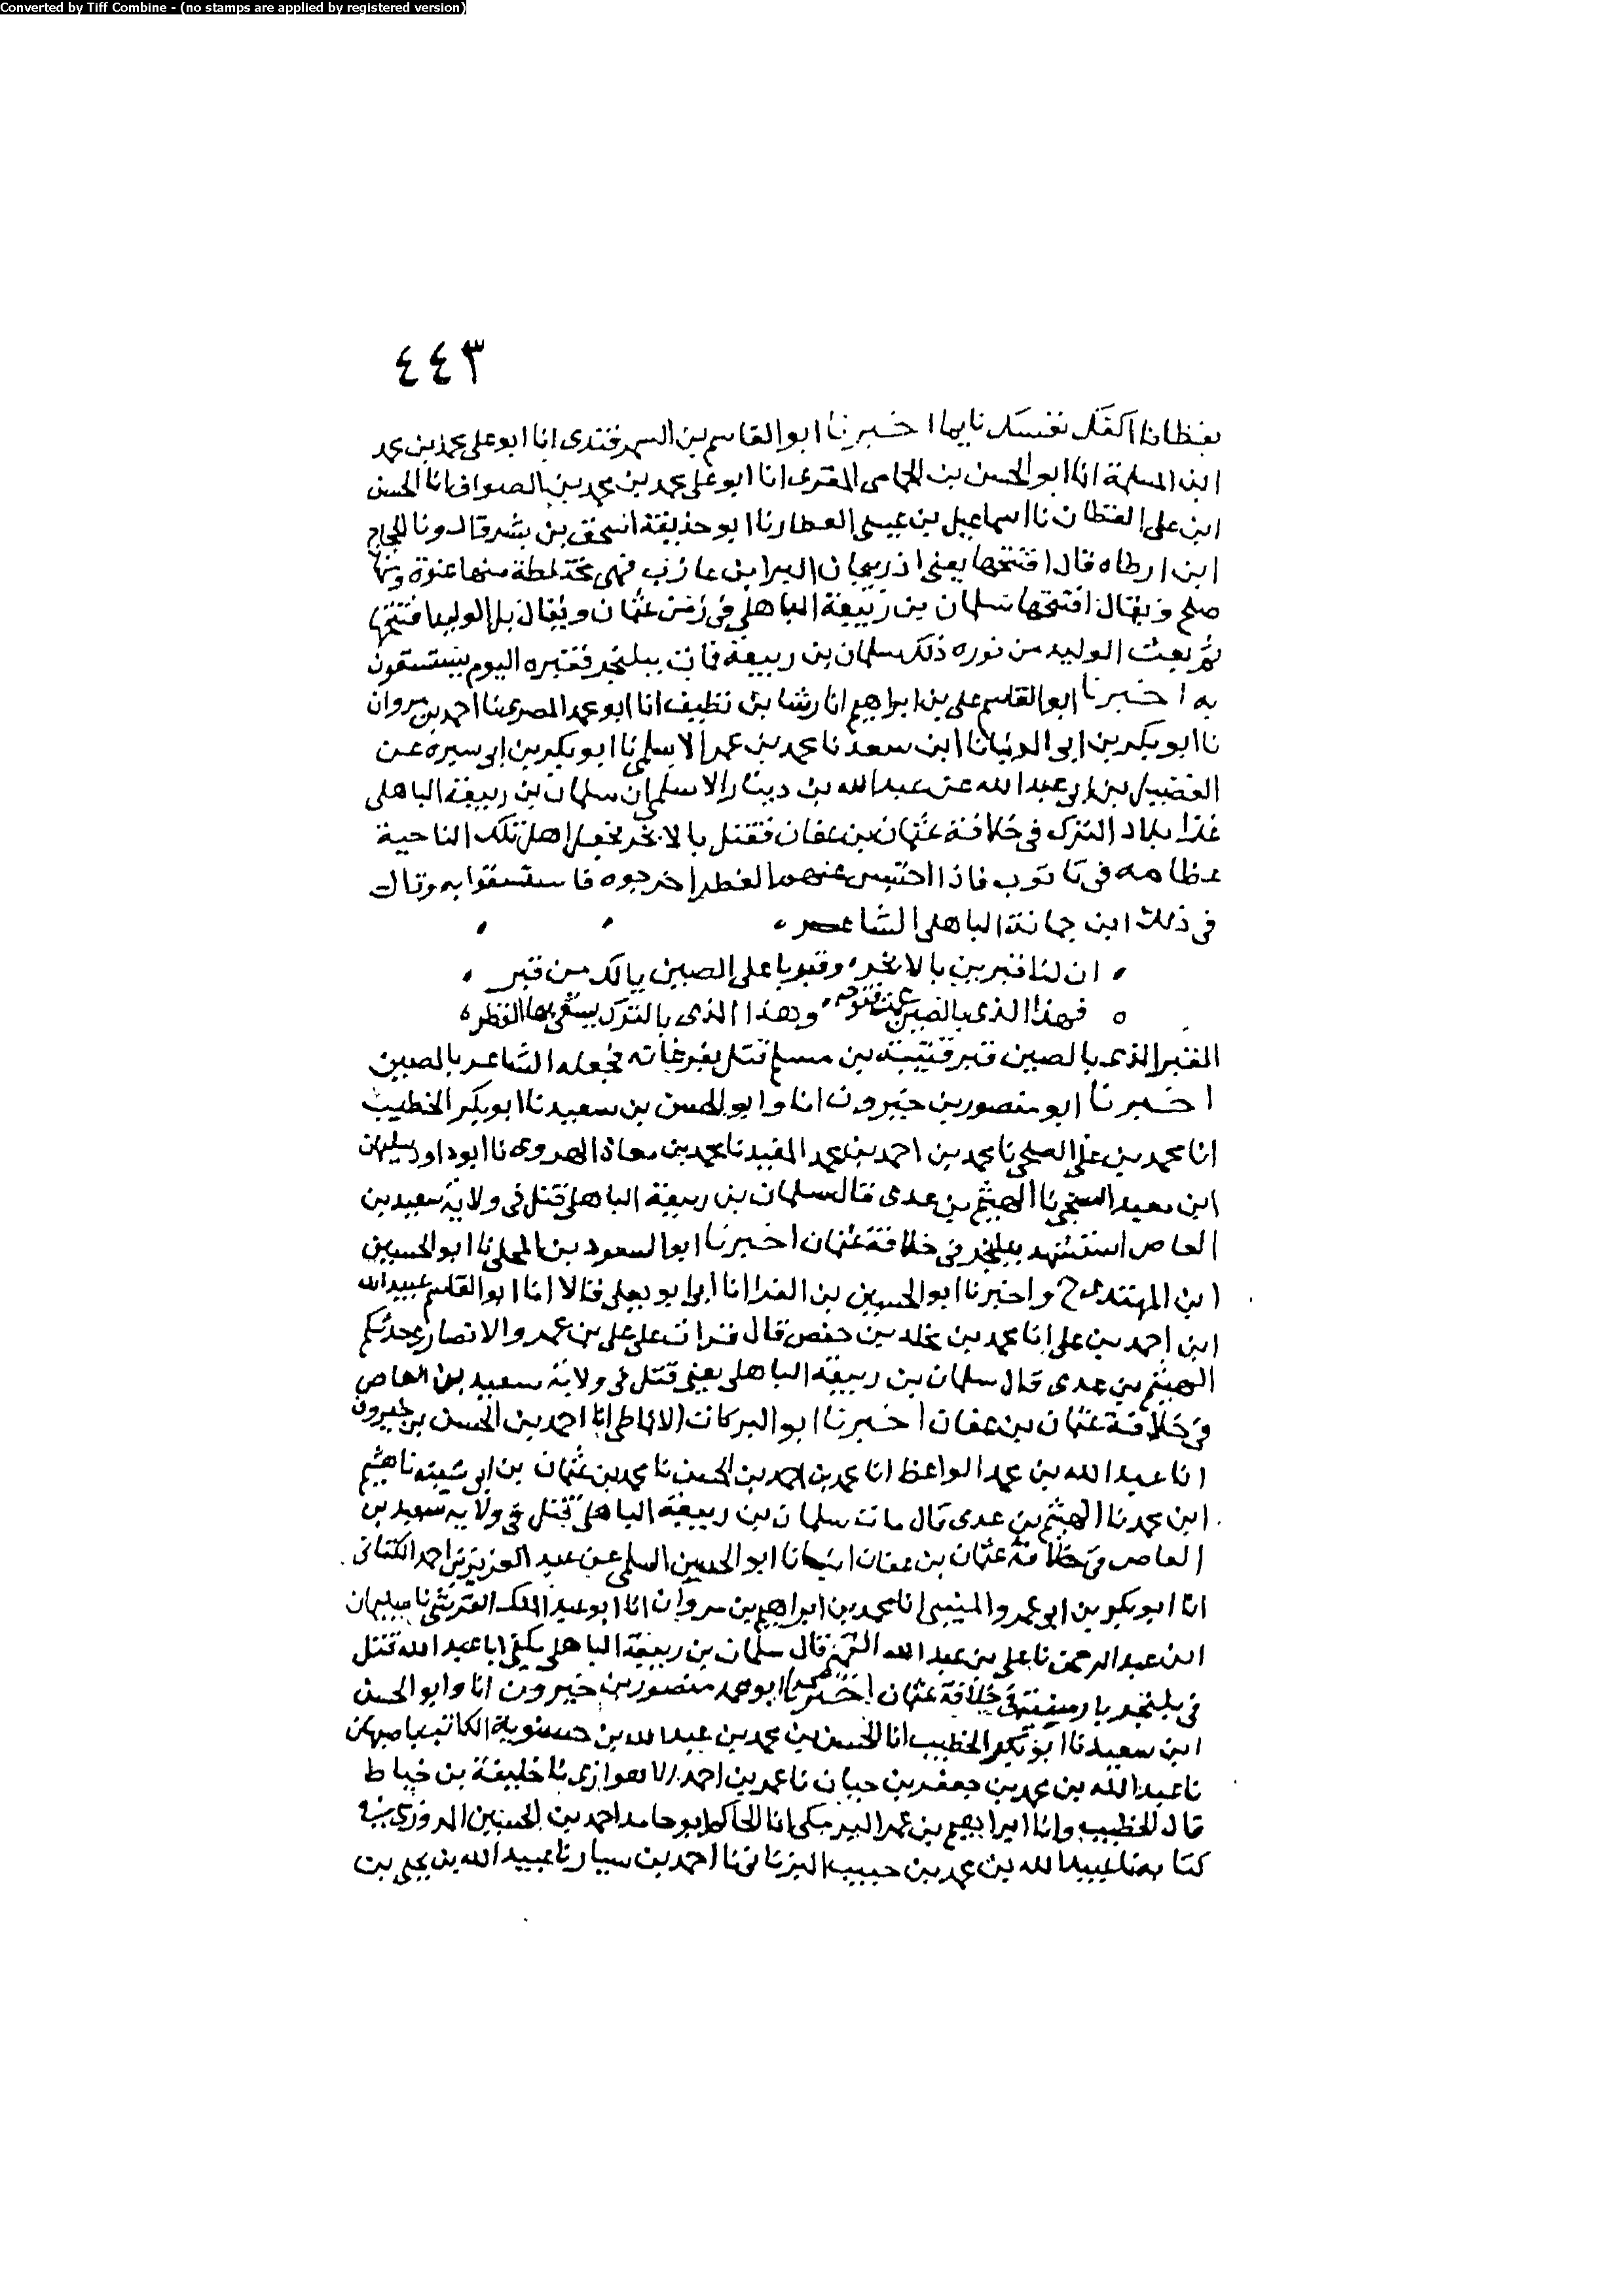 Converted by Tiff Combine - (no stamps are applied by registered version)
٤٤٣
يقظانا القك نفسك نايما اخبرنا ابوالقاسم بن السمرقندى انا ابو على محمد بن محمد
ابن المسلمة انا ابوالحسن بن الحمامى المقرى انا ابو على محمد بن محمد بن الصواف نا الحسن
ابن على القطان نا اسماعيل بن عيسى العطار نا ابو حذيفة اسحق بن بشر قال ونا الحجاج
ابن ارطاه قال افتتحها يعنى اذربيجان البرا بن عازب فهى مختلطة منها عنوة ومنها
صلح ويقال افتتحها سلمان بن ربيعة الباهلى فى زمن عثمان ويقال بل الوليد افتتحها
ثم بعث الوليد من نوره ذلك سلمان بن ربيعة فمات ببلنجر فقبره اليوم يستسقون
به اخبرنا ابوالقاسم على بن ابراهيم انا رشا بن نظيف انا ابو محمد المصرى نا احمد بن مروان
نا ابو بكر بن ابى الدنيا نا ابن سعد نا محمد بن عمر الاسلمى نا ابو بكر بن ابى سبره عن
الفضيل بن ابى عبد الله عن عبد الله بن دينار الاسلمى ان سلمان بن ربيعة الباهلى
غزا بلاد الترك فى خلافة عثمان بن عفان فقتل بالانجر فجعل اهل تلك الناحية
عظامه فى تابوت فاذا احتبس عنهم القطر اخرجوه فاستسقوا به وقال
فى ذلك ابن جمانة الباهلى الشاعر
ان لنا قبرين بالانجر وقبرنا على الصين يالك من قبر
فهذا الذى بالصين عمت فتوحه وهذا الذى بالترك يستقى بها القطر
القبر الذى بالصين قبر قتيبة بن مسلم قتل بفرغانه فجعله الشاعر بالصين
اخبرنا ابو منصور بن خيرون انا وابو الحسن بن سعيد نا ابو بكر الخطيب
انا محمد بن على الصلحى نا محمد بن احمد بن محمد المفيد نا محمد بن معاذ الهروى نا ابو داود سليمن
ابن معبد السنجى نا الهيثم بن عدى قال سلمان بن ربيعة الباهلى قتل فى ولاية سعيد بن
العاص استشهد ببلنجر فى خلافة عثمان اخبرنا ابو السعود بن المجلى نا ابو الحسين
ابن المهتدى ح واخبرنا ابو الحسين بن الفرا انا ابى ابو يعلى قالا انا ابو القاسم عبيد الله
ابن احمد بن على انا محمد بن مخلد بن حفص قال قرات على على بن عمرو الانصارى حدثكم
الهيثم بن عدى قال سلمان بن ربيعة الباهلى يعنى قتل فى ولاية سعيد بن العاص
فى خلافة عثمان بن عفان اخبرنا ابو البركات الانماطى انا احمد بن الحسن بن خيرون
انا عبيد الله بن محمد الواعظ انا محمد بن احمد بن الحسن نا محمد بن عثمان بن ابى شيبه نا هشيم
ابن محمد نا الهيثم بن عدى قال مات سلمان بن ربيعة الباهلى قتل فى ولايه سعيد بن
العاص فى خلافة عثمان بن عفان انبانا ابو الحسين السلمى عن عبد العزيز بن احمد الكتانى
انا ابو بكر بن ابو عمرو المنيبى انا محمد بن ابراهيم بن مروان انا ابو عبد الملك القرشى نا سليمان
ابن عبد الرحمن نا على بن عبد الله التميمى قال سلمان بن ربيعة الباهلى يكنى ابا عبد الله قتل
فى بلنجر بارمينية فى خلافة عثمان اخبرنا ابو منصور بن خيرون انا وابو الحسن
ابن سعيد نا ابو بكر الخطيب انا الحسن بن محمد بن عبد الله بن حسنويه الكاتب باصبهان
نا عبد الله بن محمد بن جعفر بن حيان نا عمر بن احمد الاهوازى نا خليفة بن خياط
قال الخطيب وانا ابراهيم بن عمر البرمكى انا الحاكم ابو حامد احمد بن الحسين المروزى فى
كتابه نا عبيد الله بن محمد بن حبيب البزنانى نا احمد بن سيار نا عبيد الله بن يحيى بن